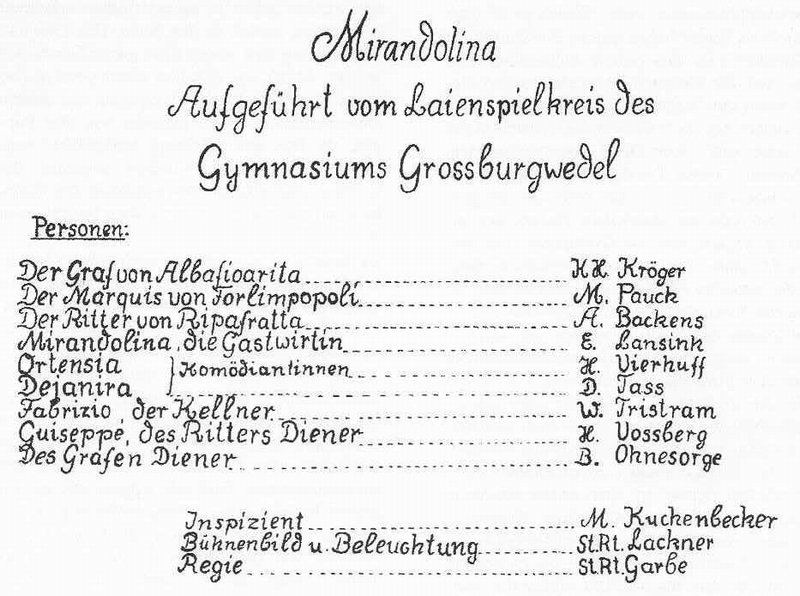 Mirandolina
Aufgeführt vom Laienspielkreis des
Gymnasiums Grossburgwedel
Personen:
Der Graf von Albafioarita K.H. Kröger
Der Marquis von Forlimpopoli M. Pauck
Der Ritter von Ripafratta A. Backens
Mirandolina, die Gastwirtin E. Lansink
Ortensia } Komödiantinnen H. Vierhuff
Dejanira D. Tass
Fabrizio, der Kellner W. Tristram
Guiseppe, des Ritters Diener H. Vossberg
Des Grafen Diener B. Ohnesorge
Inspizient M. Kuchenbecker
Bühnenbild u. Beleuchtung St.Rt. Lackner
Regie St.Rt. Garbe